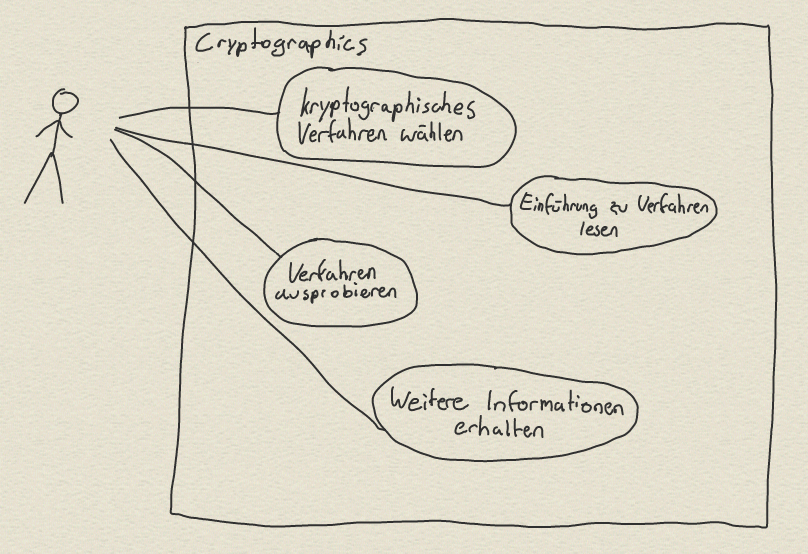 Cryptographics
kryptographisches
Verfahren wählen
Einführung zu Verfahren
lesen
Verfahren
ausprobieren
Weitere Informationen
erhalten